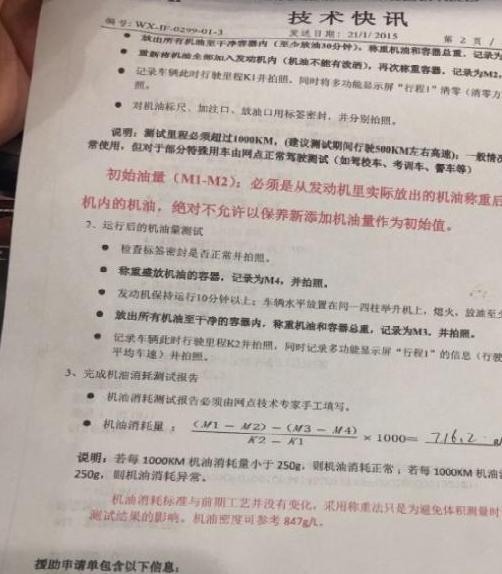 技术快讯
编号: WX-IF-0299-01-3
发送日期: 21/1/2015
第 2 页 /
● 放出所有机油至干净容器内（至少放油30分钟），称重机油和容器总重，记录为
● 重新将机油全部加入发动机内（机油不能有泼洒），再次称重容器，记录为M2，
● 记录车辆此时行驶里程K1并拍照，同时将多功能显示屏“行程1”清零（清零方
照。
● 对机油标尺、加注口、放油口用标签密封，并分别拍照。
说明：测试里程必须超过1000KM，(建议测试期间行驶500KM左右高速)；一般情况
常使用，但对于部分特殊用车由网点正常驾驶测试（如驾校车、考训车、警车等）
初始油量（M1-M2）：必须是从发动机里实际放出的机油称重后
机内的机油，绝对不允许以保养新添加机油量作为初始值。
2、运行后的机油量测试
● 检查标签密封是否正常并拍照。
● 称重盛放机油的容器，记录为M4，并拍照。
● 发动机保持运行10分钟以上；车辆水平放置在同一四柱举升机上，熄火，放油至少
● 放出所有机油至干净的容器内，称重机油和容器总重，记录为M3，并拍照。
● 记录车辆此时行驶里程K2并拍照，同时记录多功能显示屏“行程1”的信息（行驶
平均车速）并拍照。
3、完成机油消耗测试报告
● 机油消耗测试报告必须由网点技术专家手工填写。
● 机油消耗量： (M1 － M2) － (M3 － M4) / K2 － K1 × 1000= 716.2 g/
说明：若每 1000KM 机油消耗量小于 250g，则机油消耗正常；若每 1000KM 机油
250g，则机油消耗异常。
机油消耗标准与前期工艺并没有变化，采用称重法只是为避免体积测量时
测试结果的影响。机油密度可参考 847g/L。
援助申请单包含以下信息：